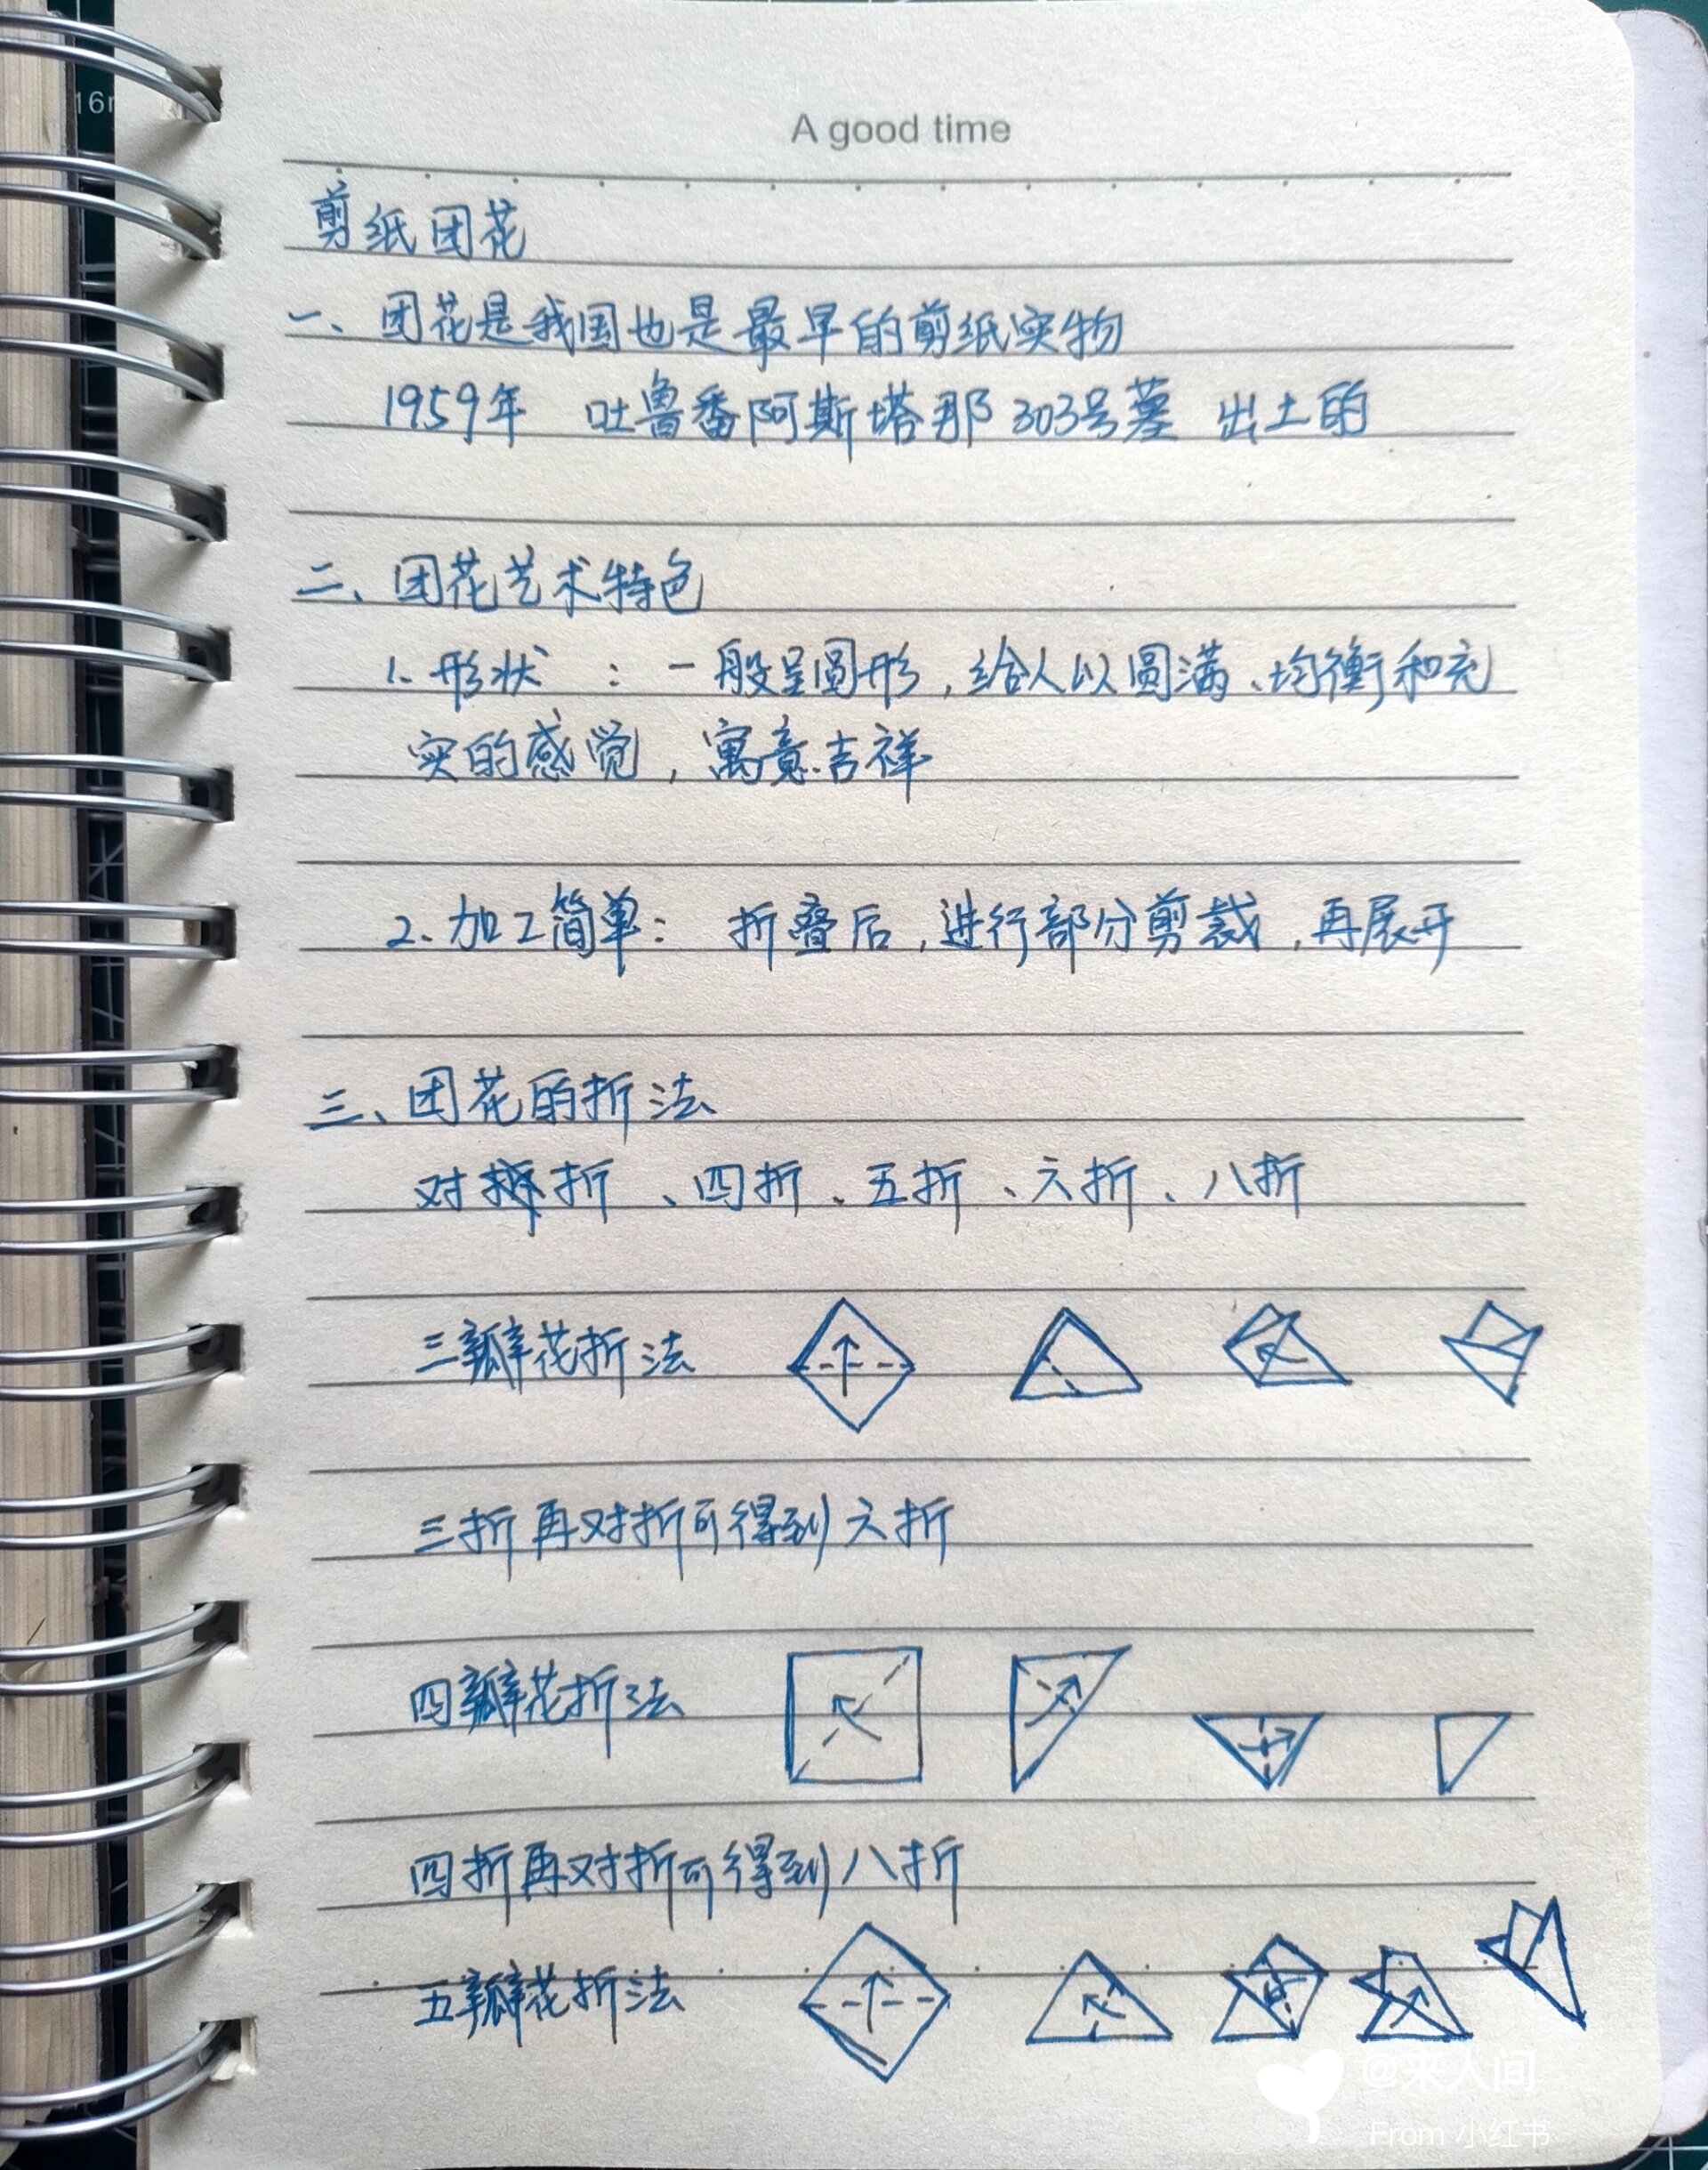 16
A good time
剪纸团花
一、团花是我国也是最早的剪纸实物
1959年 吐鲁番阿斯塔那303号墓 出土的
二、团花艺术特色
1、形状 : 一般呈圆形,给人以圆满、均衡和充
实的感觉,寓意吉祥
2、加工简单: 折叠后,进行部分剪裁,再展开
三、团花的折法
对折、四折、五折、六折、八折
三瓣花折法
三折再对折可得到六折
四瓣花折法
四折再对折可得到八折
五瓣花折法
@来人间
From 小红书